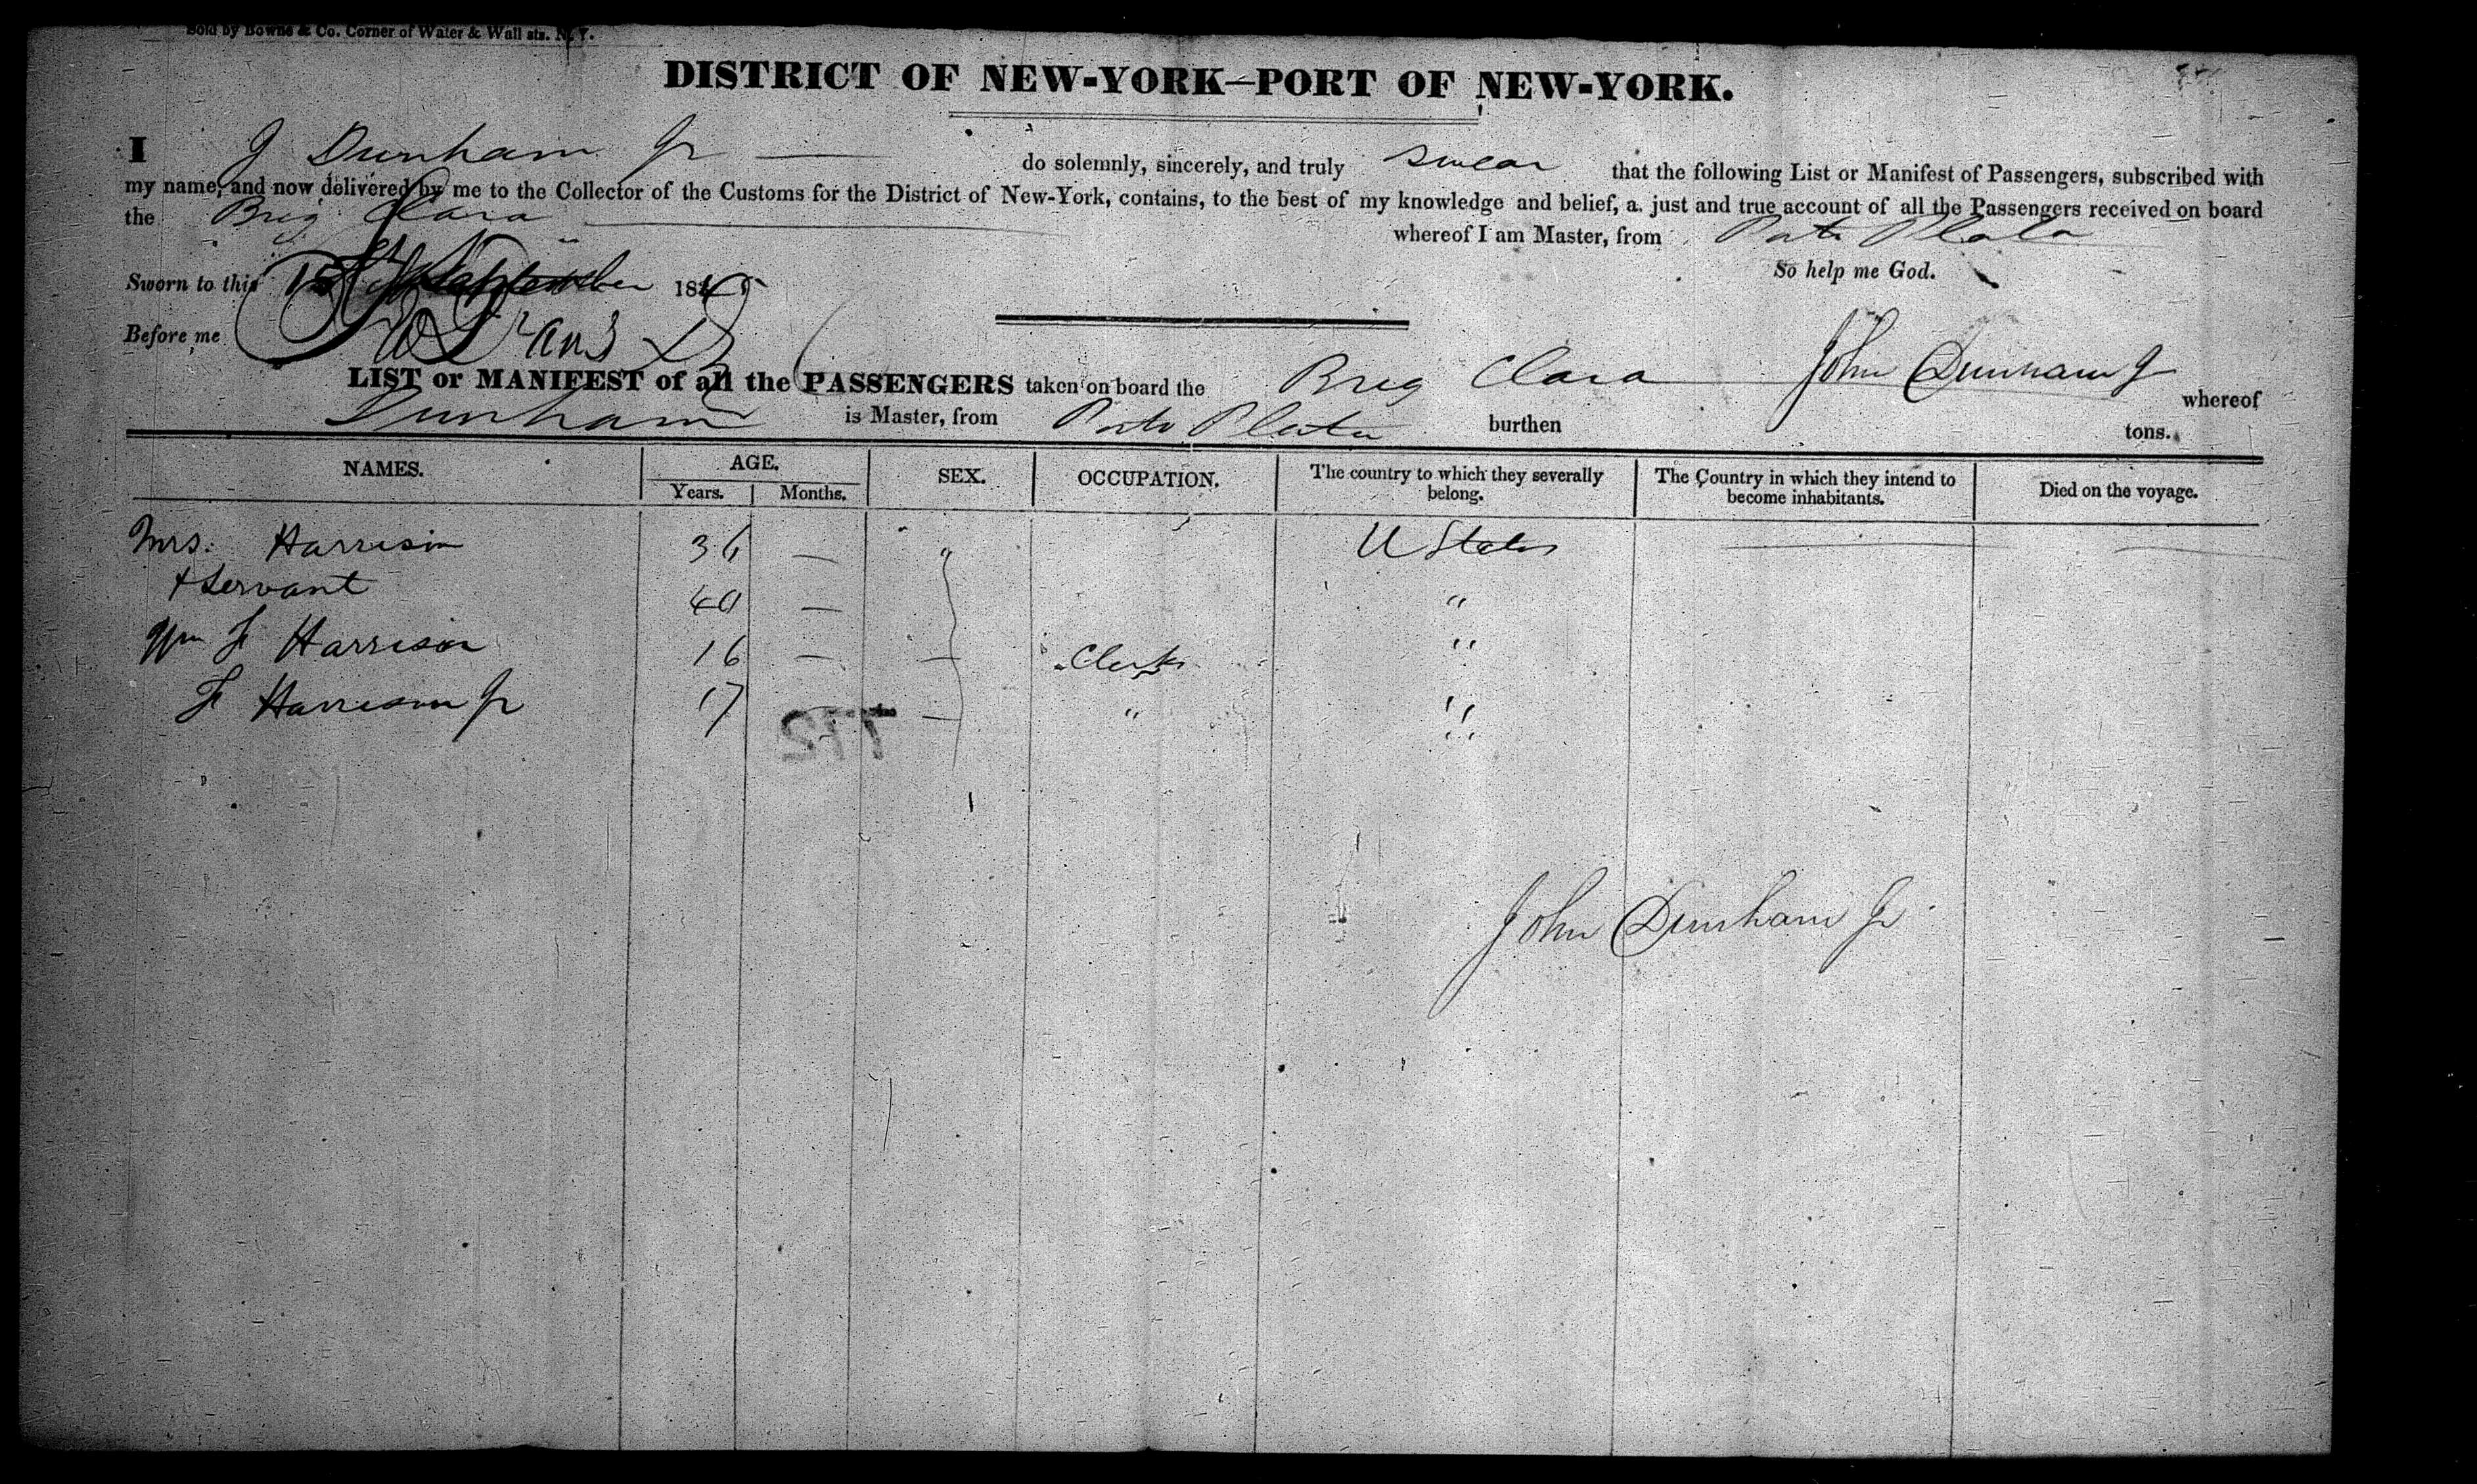 Sold by Bowne & Co. Corner of Water & Wall sts. N. Y.
DISTRICT OF NEW-YORK—PORT OF NEW-YORK.
I J Dunham Jr do solemnly, sincerely, and truly swear that the following List or Manifest of Passengers, subscribed with
my name, and now delivered by me to the Collector of the Customs for the District of New-York, contains, to the best of my knowledge and belief, a just and true account of all the Passengers received on board
the Brig Clara whereof I am Master, from Porto Plata
So help me God.
Sworn to this 15 September 184
Before me
John Dunham Jr
LIST or MANIFEST of all the PASSENGERS taken on board the Brig Clara whereof
Dunham is Master, from Porto Plata burthen tons.
NAMES. AGE. SEX. OCCUPATION. The country to which they severally belong. The Country in which they intend to become inhabitants. Died on the voyage.
Years. Months.
Mrs. Harrison 36 — " U States
+ Servant 40 — "
Wm F Harrison 16 — — Clerk "
F Harrison Jr 17 — " "
772
John Dunham Jr